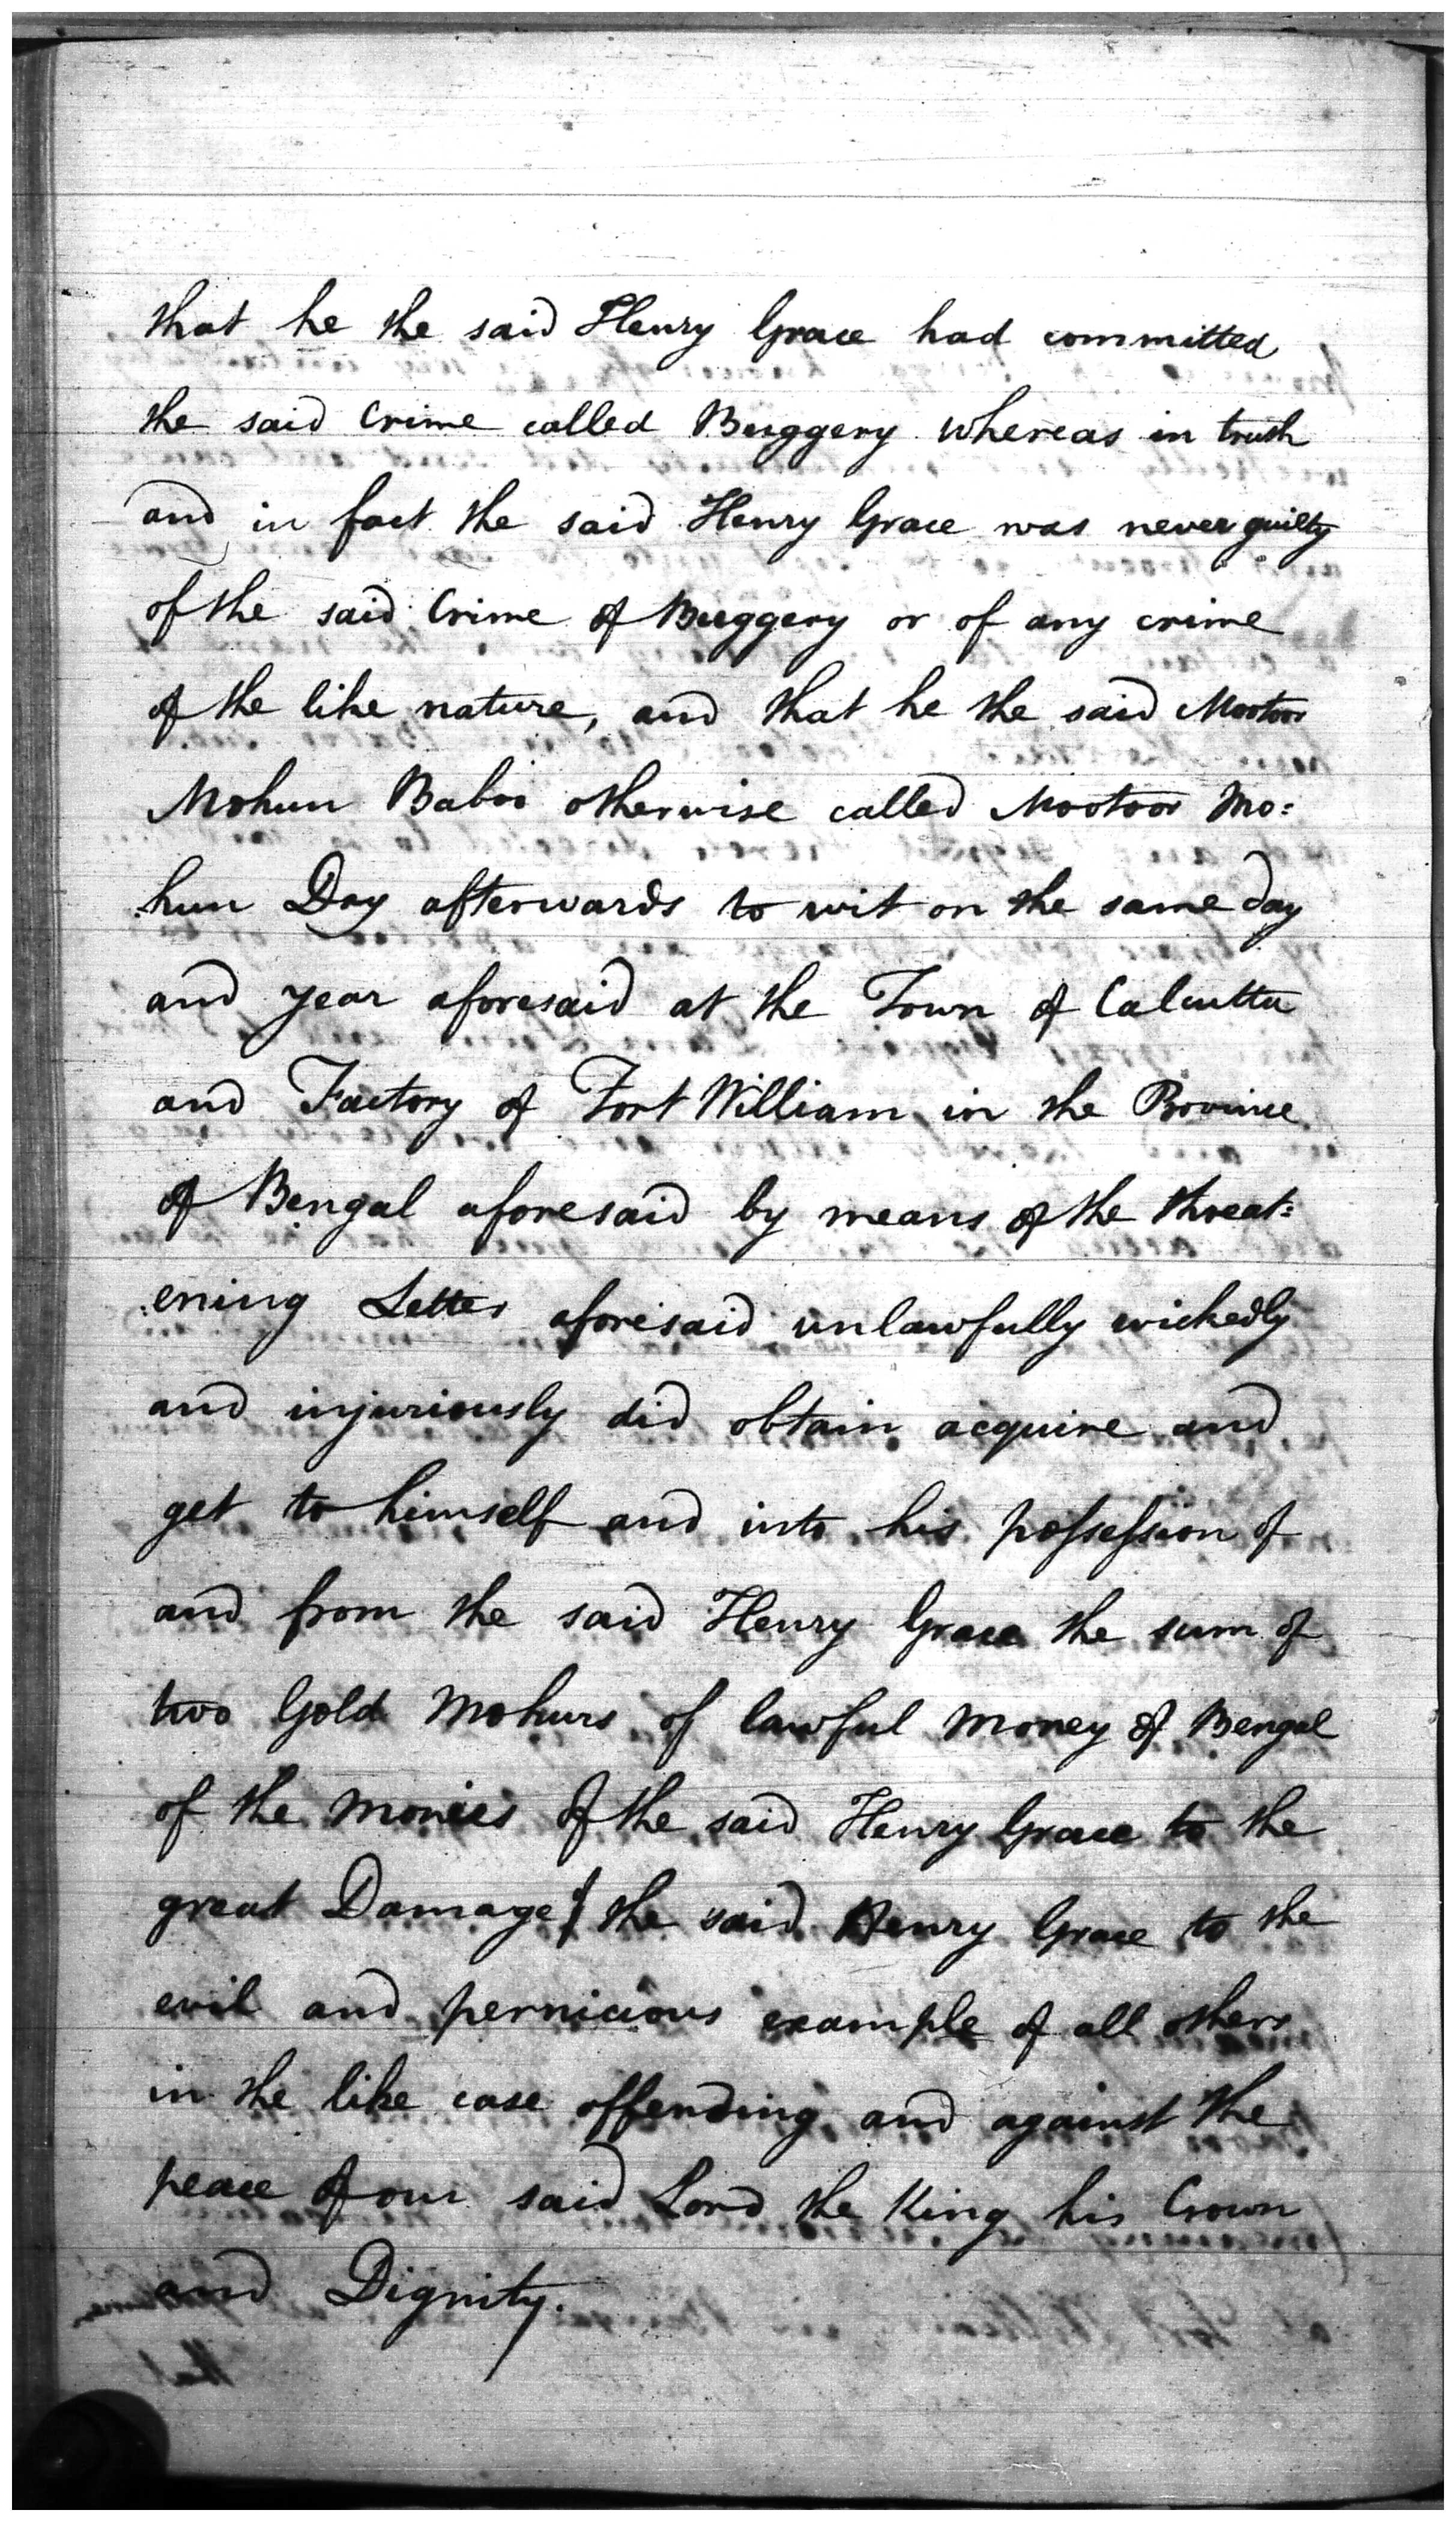 that he the said Henry Grace had committed
the said Crime called Buggery whereas in truth
and in fact the said Henry Grace was never guilty
of the said Crime of Buggery or of any crime
of the like nature, and that he the said Mootoor
Mohun Baboo otherwise called Mootoor Mo:
:hun Day afterwards to wit on the same day
and year aforesaid at the Town of Calcutta
and Factory of Fort William in the Province
of Bengal aforesaid by means of the threat:
:ening Letter aforesaid unlawfully wickedly
and injuriously did obtain acquire and
get to himself and into his possession of
and from the said Henry Grace the sum of
two Gold Mohurs of lawful money of Bengal
of the monies of the said Henry Grace to the
great Damage of the said Henry Grace to the
evil and pernicious example of all others
in the like case offending and against the
peace of our said Lord the King his Crown
and Dignity.